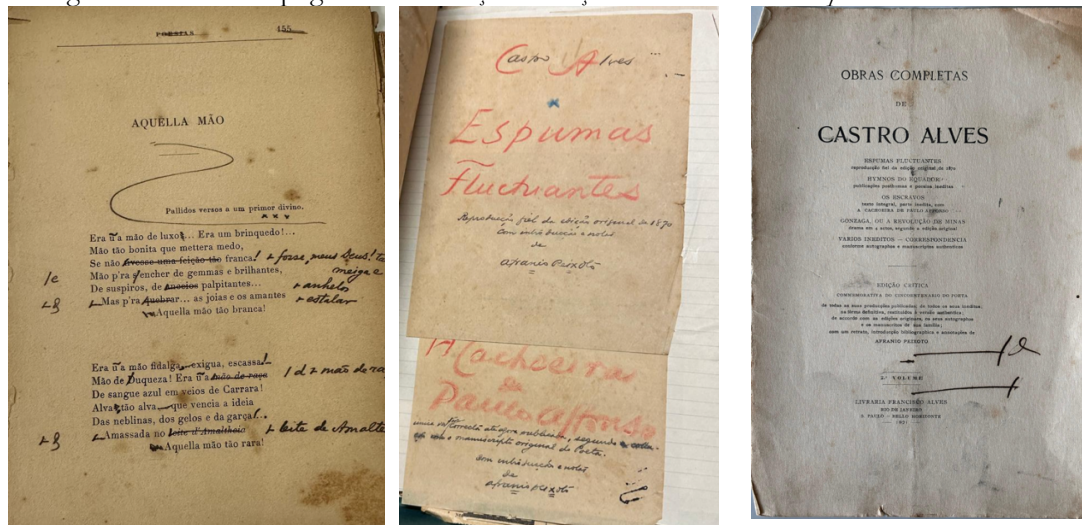 POESIAS 155
AQUELLA MÃO
Pallidos versos a um primor divino.
Era u'a mão de luxo... Era um brinquedo!...
Mão tão bonita que mettera medo,
Se não tivesse uma feição tão franca! + fosse, meus Deus! tã
Mão p'ra encher de gemmas e brilhantes, meiga e
De suspiros, de anceios palpitantes... + anhelos
Mas p'ra quebrar... as joias e os amantes + estalar
Aquella mão tão branca!
Era u'a mão fidalga, exigua, escassa!
Mão de Duqueza! Era u'a mão de raça 1 d + mão de ra
De sangue azul em veios de Carrara!
Alva tão alva que vencia a ideia
Das neblinas, dos gelos e da garça!...
Amassada no leite d'Amaltheia + leite de Amalte
Aquella mão tão rara!
Castro Alves
Espumas
Fluctuantes
Reproducção fiel da edição original de 1870
com introducção e notas
de
Afranio Peixoto
A Cachoeira
de
Paulo Affonso
manuscripto original do Poeta.
com introducção e notas
de
Afranio Peixoto
OBRAS COMPLETAS
DE
CASTRO ALVES
ESPUMAS FLUCTUANTES
reproducção fiel da edição original de 1870
HYMNOS DO EQUADOR
publicações posthumas e poesias ineditas
OS ESCRAVOS
texto integral, parte inedita, com
A CACHOEIRA DE PAULO AFFONSO
GONZAGA, OU A REVOLUÇÃO DE MINAS
drama em 4 actos, segundo a edição original
VARIOS INEDITOS — CORRESPONDENCIA
conforme autographos e manuscriptos authenticos
EDIÇÃO CRITICA
COMMEMORATIVA DO CINCOENTENARIO DO POETA
de todas as suas producções publicadas, de todos os seus ineditos;
na fórma definitiva, restituidos á versão authentica;
de accordo com as edições originaes, os seus autographos
e os manuscriptos de sua familia;
com um retrato, introducção bibliographica e annotações de
AFRANIO PEIXOTO
2.º VOLUME
LIVRARIA FRANCISCO ALVES
RIO DE JANEIRO
S. PAULO — BELLO HORIZONTE
1921